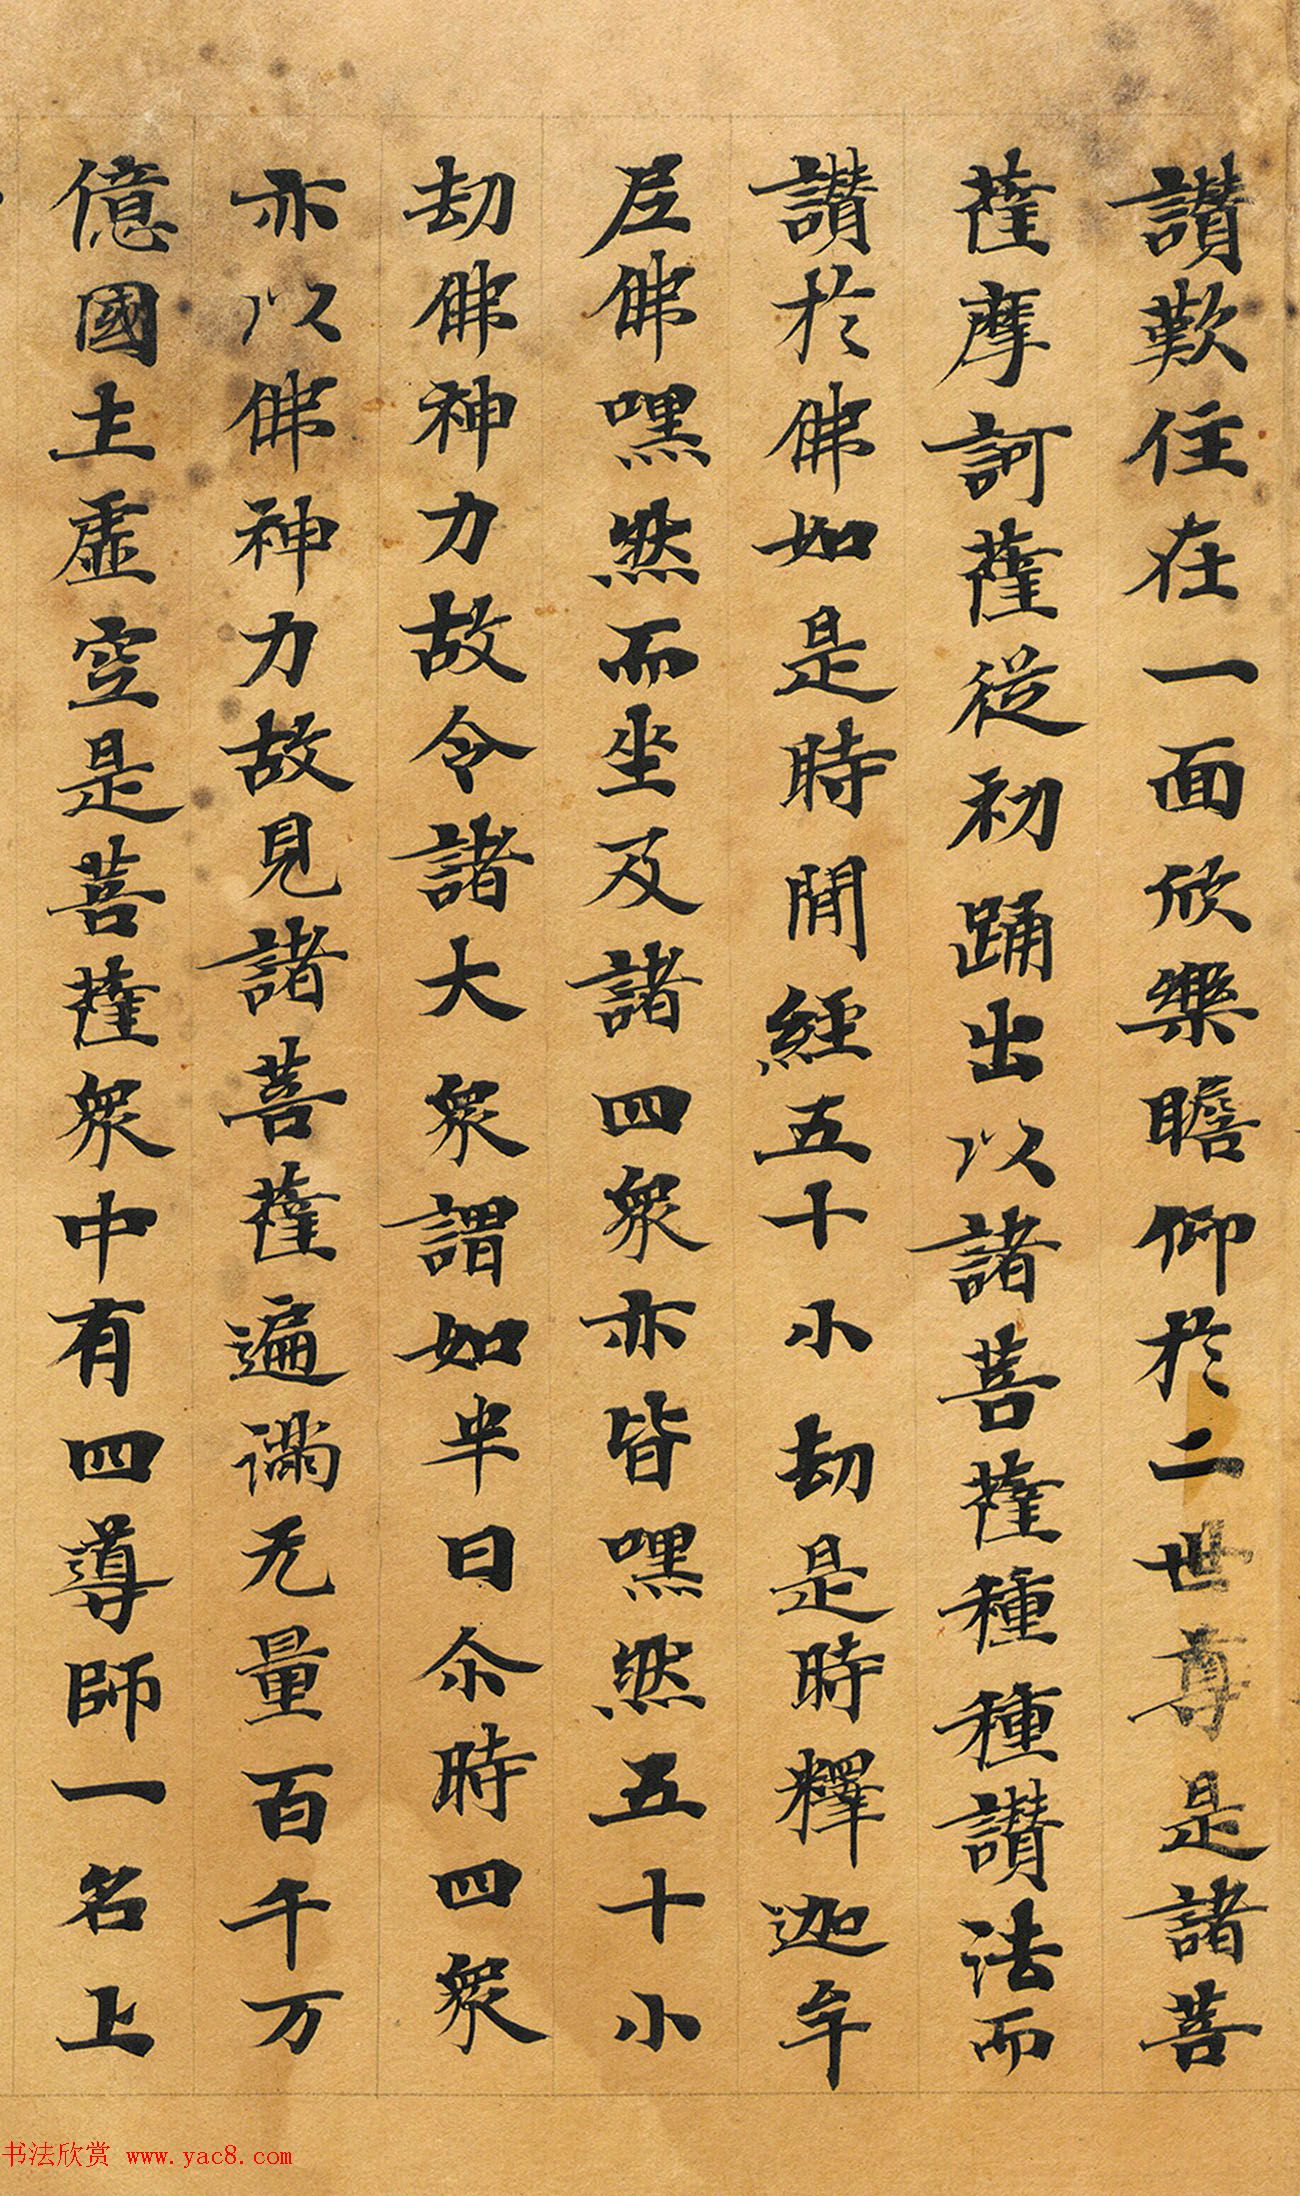 讃歎住在一面欣樂瞻仰於二世尊是諸菩
薩摩訶薩從初踊出以諸菩薩種種讃法而
讃於佛如是時閒經五十小劫是時釋迦牟
尼佛嘿然而坐及諸四衆亦皆嘿然五十小
劫佛神力故令諸大衆謂如半日尒時四衆
亦以佛神力故見諸菩薩遍滿无量百千万
億國土虛空是菩薩衆中有四導師一名上
书法欣赏 www.yac8.com